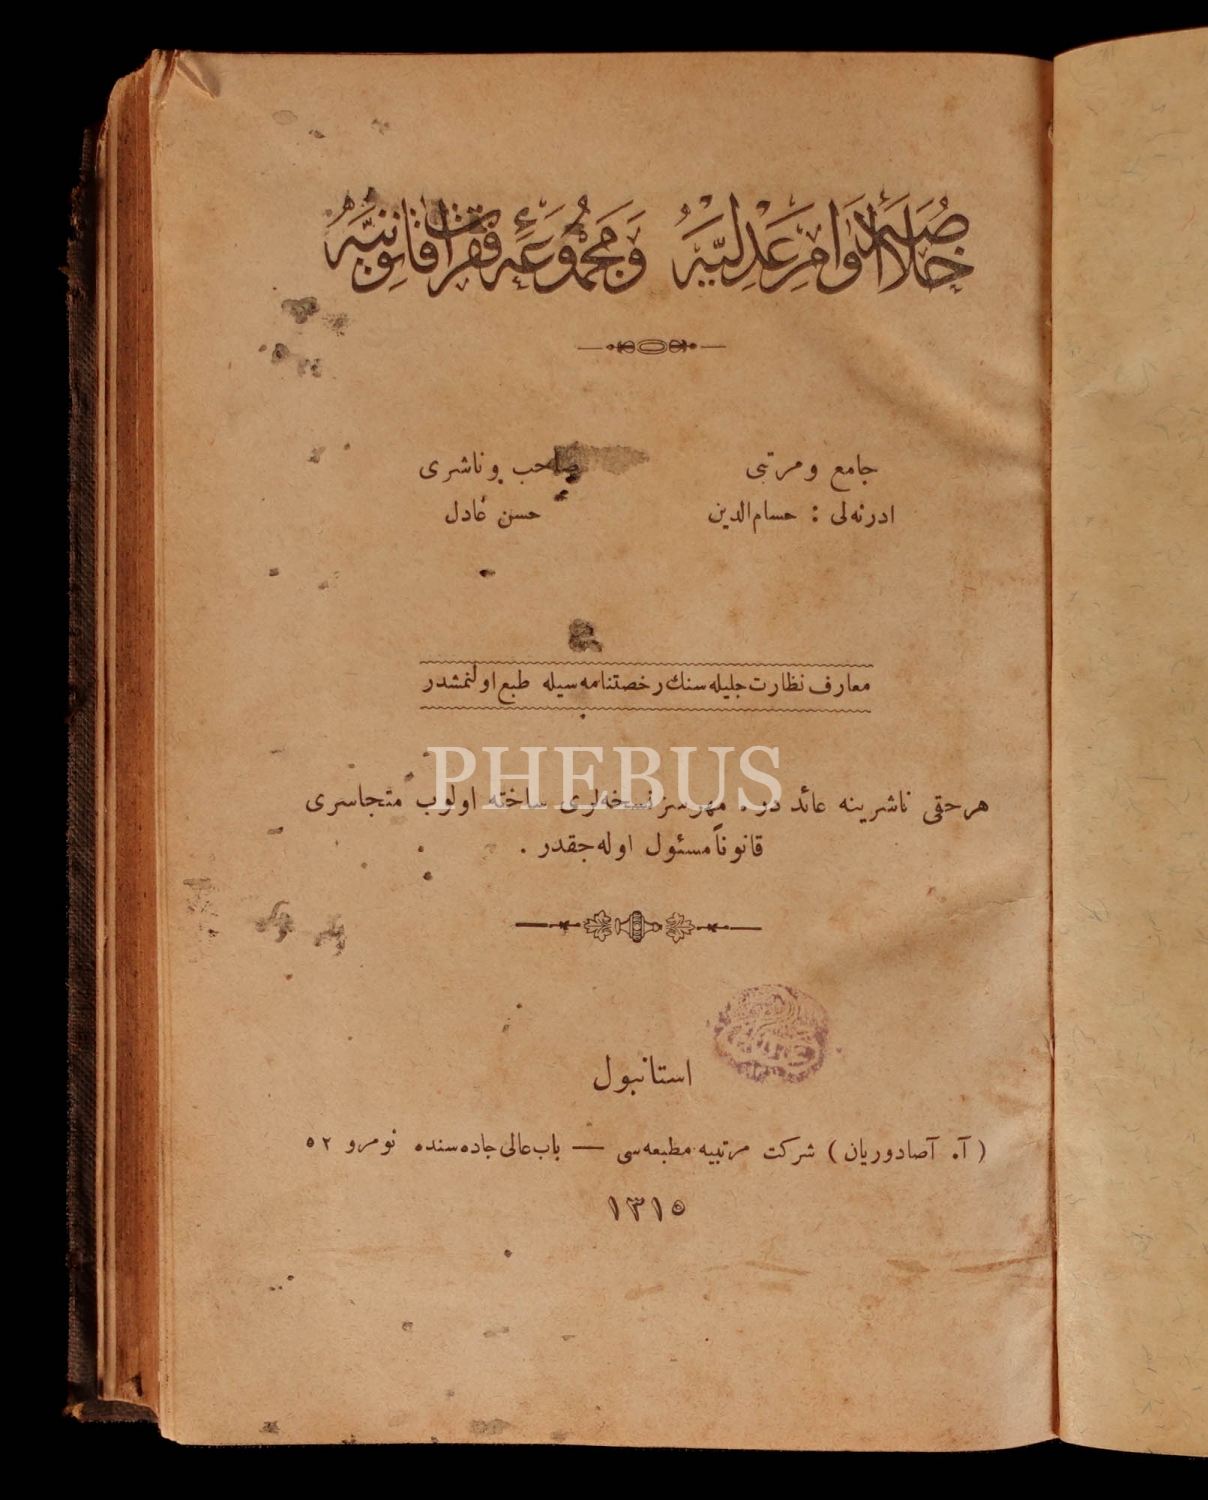 خلاصة الاوامر عدليه ومجموعهٔ فقرات قانونيه
جامع و مرتبى
ادرنه‌لى : حسام‌الدين
صاحب و ناشرى
حسن عادل
معارف نظارت جليله سنك رخصتنامه سيله طبع اولنمشدر
PHEBUS
هر حقى ناشرينه عائد در. مهرسز نسخه‌لرى ساخته اولوب متجاسرى
قانوناً مسئول اوله جقدر .
استانبول
( آ. آصادوريان ) شركت مرتبيه مطبعه‌سى — باب عالى جاده سنده نومرو ٥٢
١٣١٥